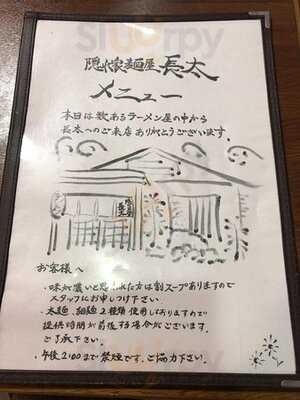 Sluurpy
隠れ家麺屋 長太
メニュー
本日は数あるラーメン屋の中から
長太へのご来店ありがとうございます。
お客様へ
・味が濃いと思われた方は割スープありますので
スタッフにお申しつけ下さい。
・太麺、細麺2種類使用しておりますので
提供時間が前後する場合がございます。
ご了承下さい。
・午後2:00まで禁煙です。ご協力下さい。